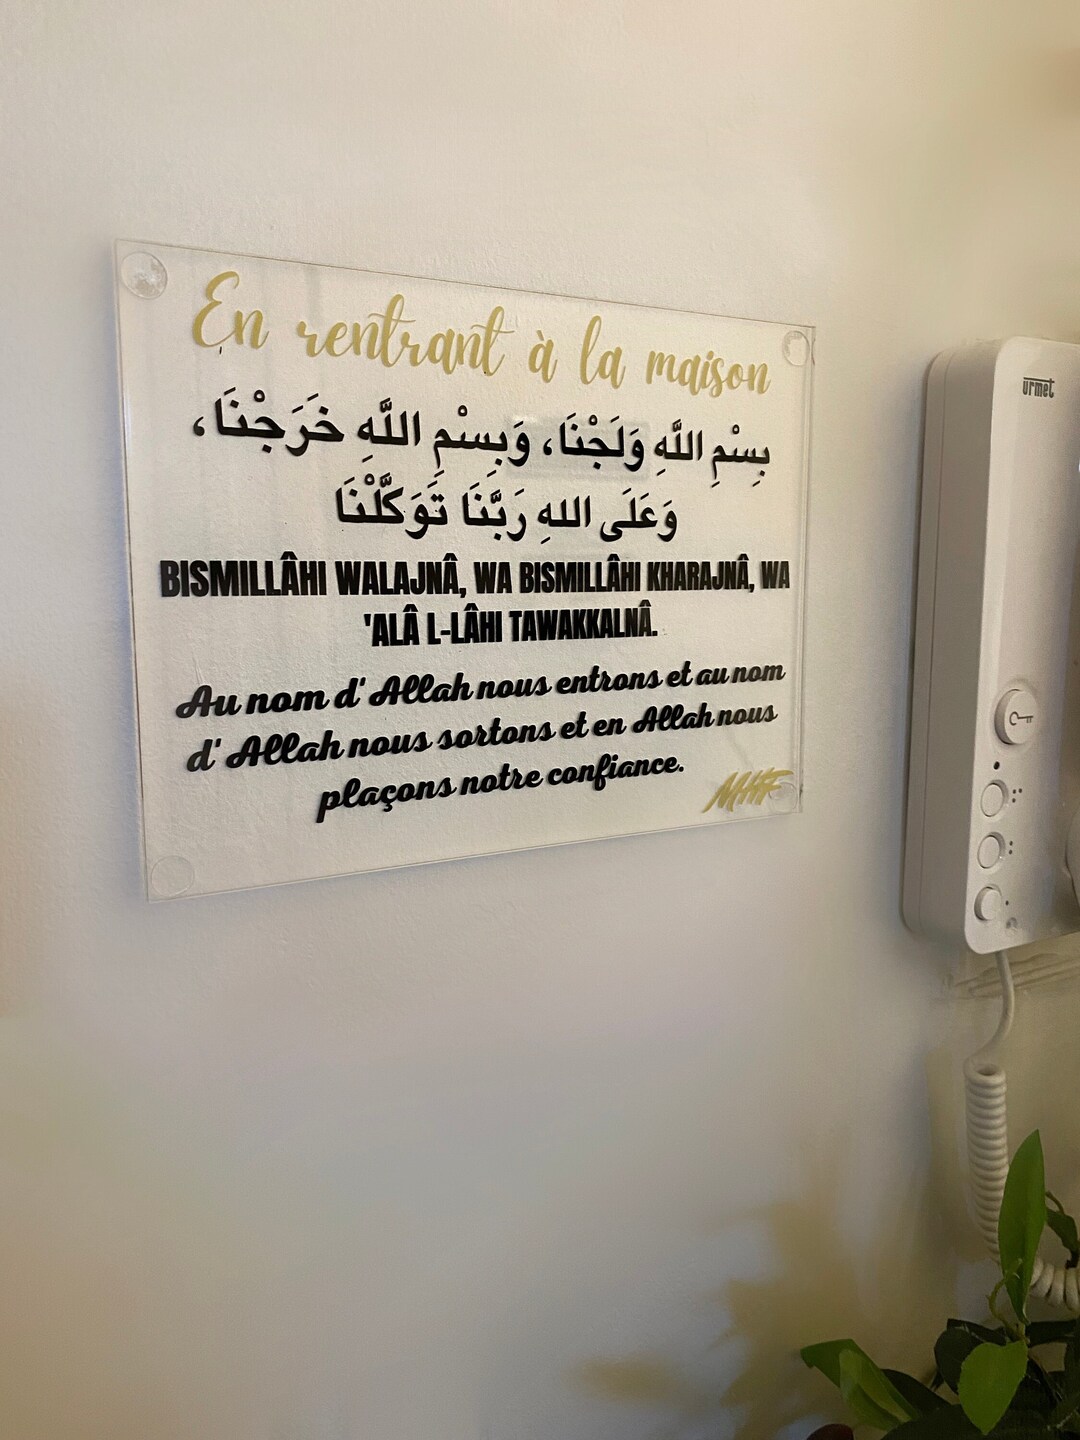 En rentrant à la maison
بِسْمِ اللَّهِ وَلَجْنَا، وَبِسْمِ اللَّهِ خَرَجْنَا،
وَعَلَى اللهِ رَبَّنَا تَوَكَّلْنَا
BISMILLÂHI WALAJNÂ, WA BISMILLÂHI KHARAJNÂ, WA
'ALÂ L-LÂHI TAWAKKALNÂ.
Au nom d'Allah nous entrons et au nom
d'Allah nous sortons et en Allah nous
plaçons notre confiance.
urmet